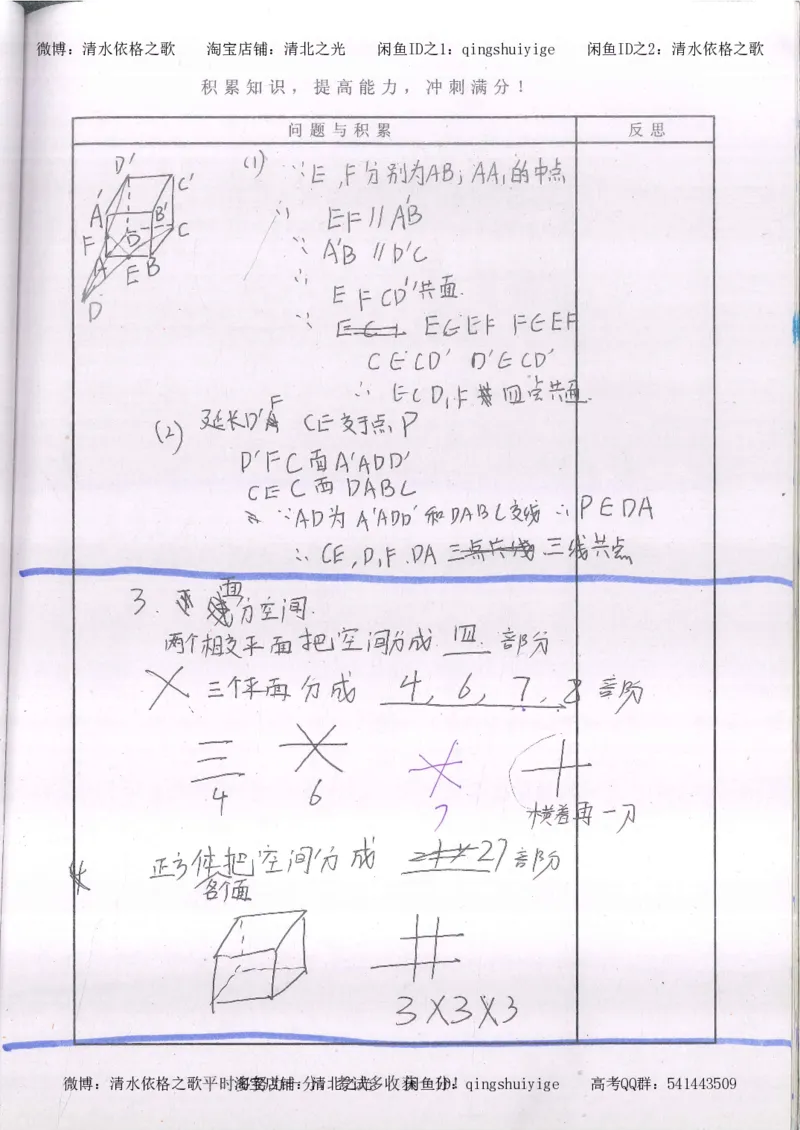 微博：清水依格之歌 淘宝店铺：清北之光 闲鱼ID之1：qingshuiyige 闲鱼ID之2：清水依格之歌
积累知识，提高能力，冲刺满分！
问题与积累 反思
D' C' A' B' F D C A E B D
(1) ∵E,F分别为AB;AA₁的中点
∴ EF//A'B
∵ A'B//D'C
∴ E F C D'共面.
∵ E∈EF F∈EF
C∈CD' D'∈CD'
∴ E C D₁F 四点共面.
(2) 延长D'F CE交于点P
D'F⊂面A'ADD'
CE⊂面DABC
∵AD为A'ADD'和DABC交线 ∴P∈DA
∴CE,D₁F.DA 三线共点
3. 面分空间.
两个相交平面把空间分成 四. 部分
三个平面分成 4,6,7,8 部分
4 6 7 横着再一刀
正方体把空间分成 27部分
各个面
3×3×3
微博：清水依格之歌 闲鱼ID：qingshuiyige 高考QQ群：541443509